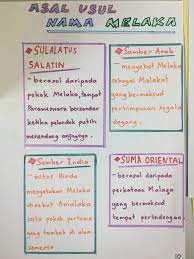 ASAL USUL
NAMA MELAKA
SULALATUS
SALATIN
- berasal daripada
pokok Melaka, tempat
Parameswara bersandar
ketika pelanduk putih
menendang anjingnya.
Sumber Arab
- menyebut Melaka
sebagai Malakat
yang bermaksud
perhimpunan segala
dagang.
Sumber India
- mitos Hindu
mengatakan Melaka
disebut Amalaka
iaitu pokok pertama
yang tumbuh di alam
semesta.
SUMA ORIENTAL
- berasal daripada
perkataan Malaqa
yang bermaksud
tempat perlindungan.
10